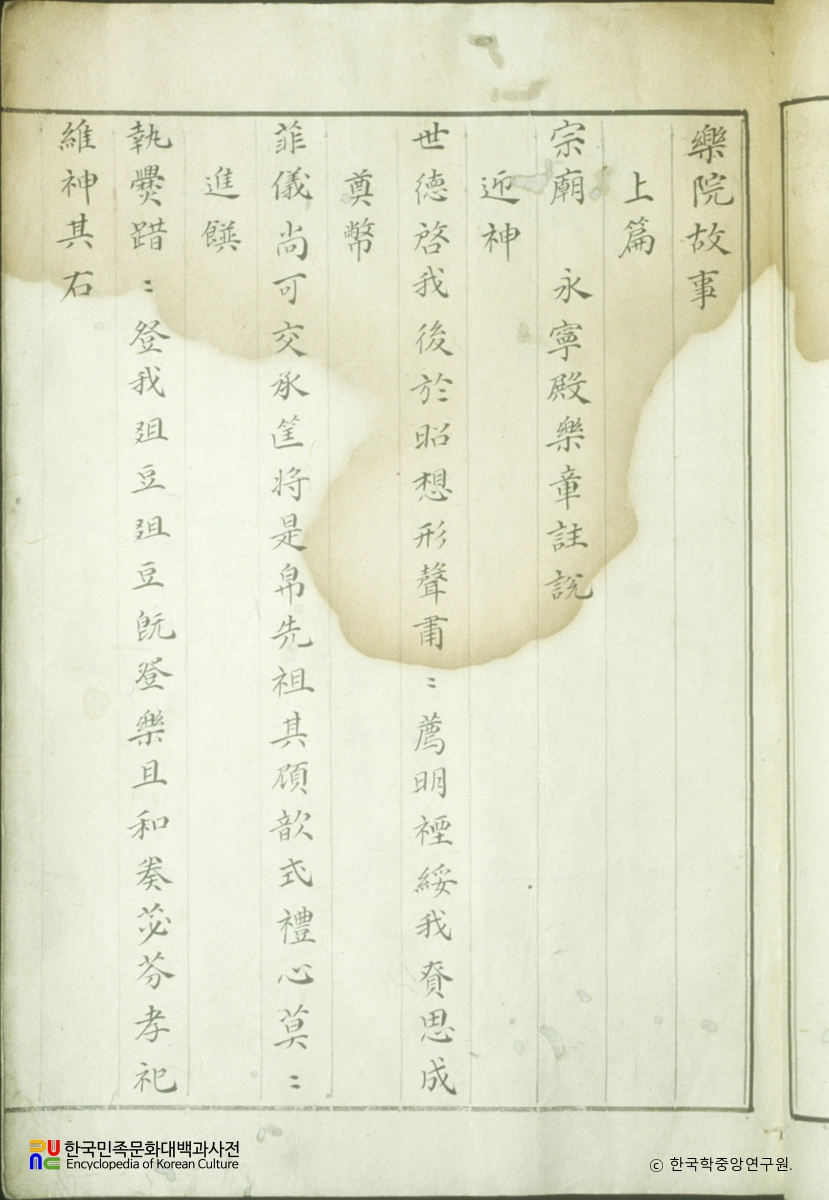 樂院故事
上篇
宗廟　永寧殿樂章註說
迎神
世德啓我後於昭想形聲肅〻薦明禋綏我賚思成
奠幣
菲儀尚可交承筐将是帛先祖其頋歆式禮心莫〻
進饌
執爨踖〻登我俎豆俎豆旣登樂且和奏苾芬孝祀
維神其右
한국민족문화대백과사전
Encyclopedia of Korean Culture
© 한국학중앙연구원.